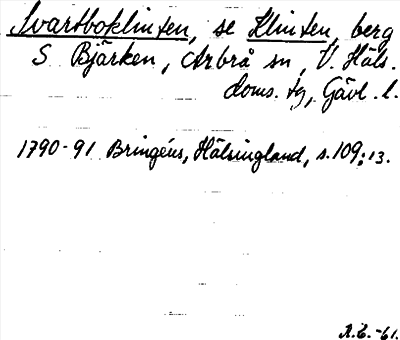 Svartboklinten, se Klinten, berg
S Bjärken, Arbrå sn, V. Häls.
doms. tg, Gävl. l.
1790-91 Bringéus, Hälsingland, s. 109:13.
R.E. -61.